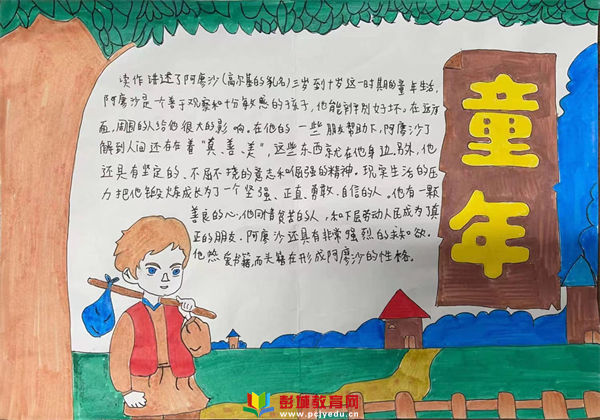 读作讲述了阿廖沙(高尔基的乳名)三岁到十岁这一时期的童年生活,
阿廖沙是个善于观察和十分敏感的孩子,他能判别好坏.在这方
面,周围的人给他很大的影响.在他的一些朋友帮助下,阿廖沙了
解到人间还存在着"真、善、美",这些东西就在他身边.另外,他
还具有坚定的、不屈不挠的意志和倔强的精神.现实生活的压
力把他锻炼成长为了一个坚强、正直、勇敢、自信的人.他有一颗
善良的心,他同情贫苦的人,和下层劳动人民成为了真
正的朋友.阿廖沙还具有非常强烈的求知欲.
他热爱书籍,而关键在形成阿廖沙的性格.
童年
彭城教育网
www.pcjyedu.cn